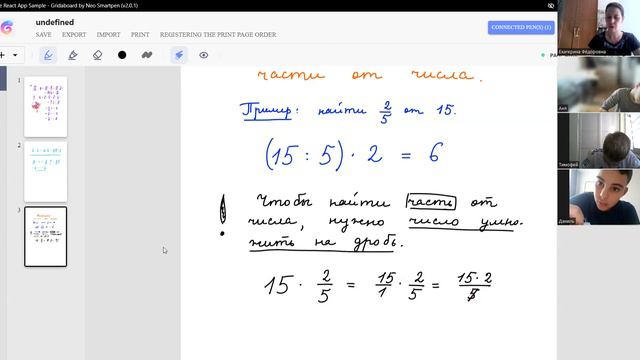 e React App Sample - Gridaboard by Neo Smartpen (v2.0.1)
undefined
SAVE EXPORT IMPORT PRINT REGISTERING THE PRINT PAGE ORDER
CONNECTED PEN(S) (1)
1
2
3
части от числа.
Пример: найти 2/5 от 15.
(15 : 5) · 2 = 6
! Чтобы найти часть от
числа, нужно число умно-
жить на дробь.
15 · 2/5 = 15/1 · 2/5 = 15·2/5
Екатерина Фёдоровна
Аня
Тимофей
Даниль